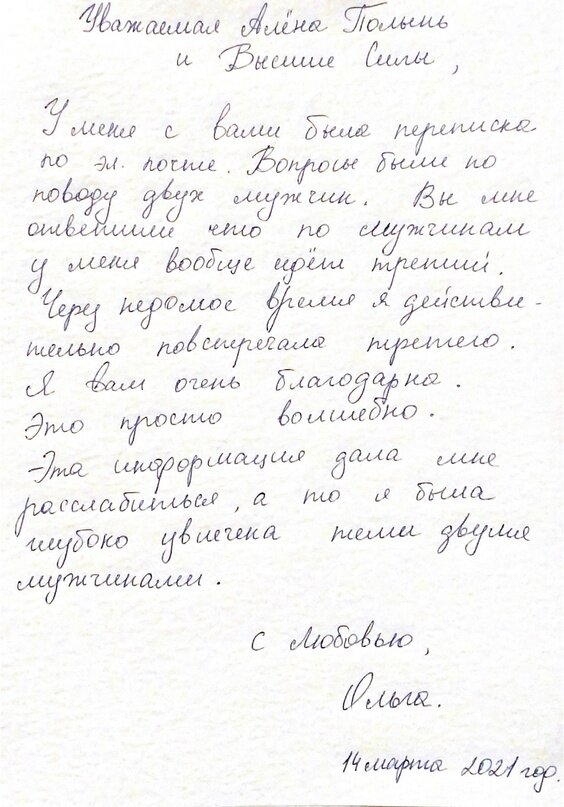 Уважаемая Алёна Полынь
и Высшие Силы,
У меня с вами была переписка
по эл. почте. Вопросы были по
поводу двух мужчин. Вы мне
ответили что по мужчинам
у меня вообще идёт третий.
Через недолгое время я действи-
тельно повстречала третьего.
Я вам очень благодарна.
Это просто волшебно.
Эта информация дала мне
расслабиться, а то я была
глубоко увлечена теми двумя
мужчинами.
С любовью,
Ольга.
14 марта 2021 год.